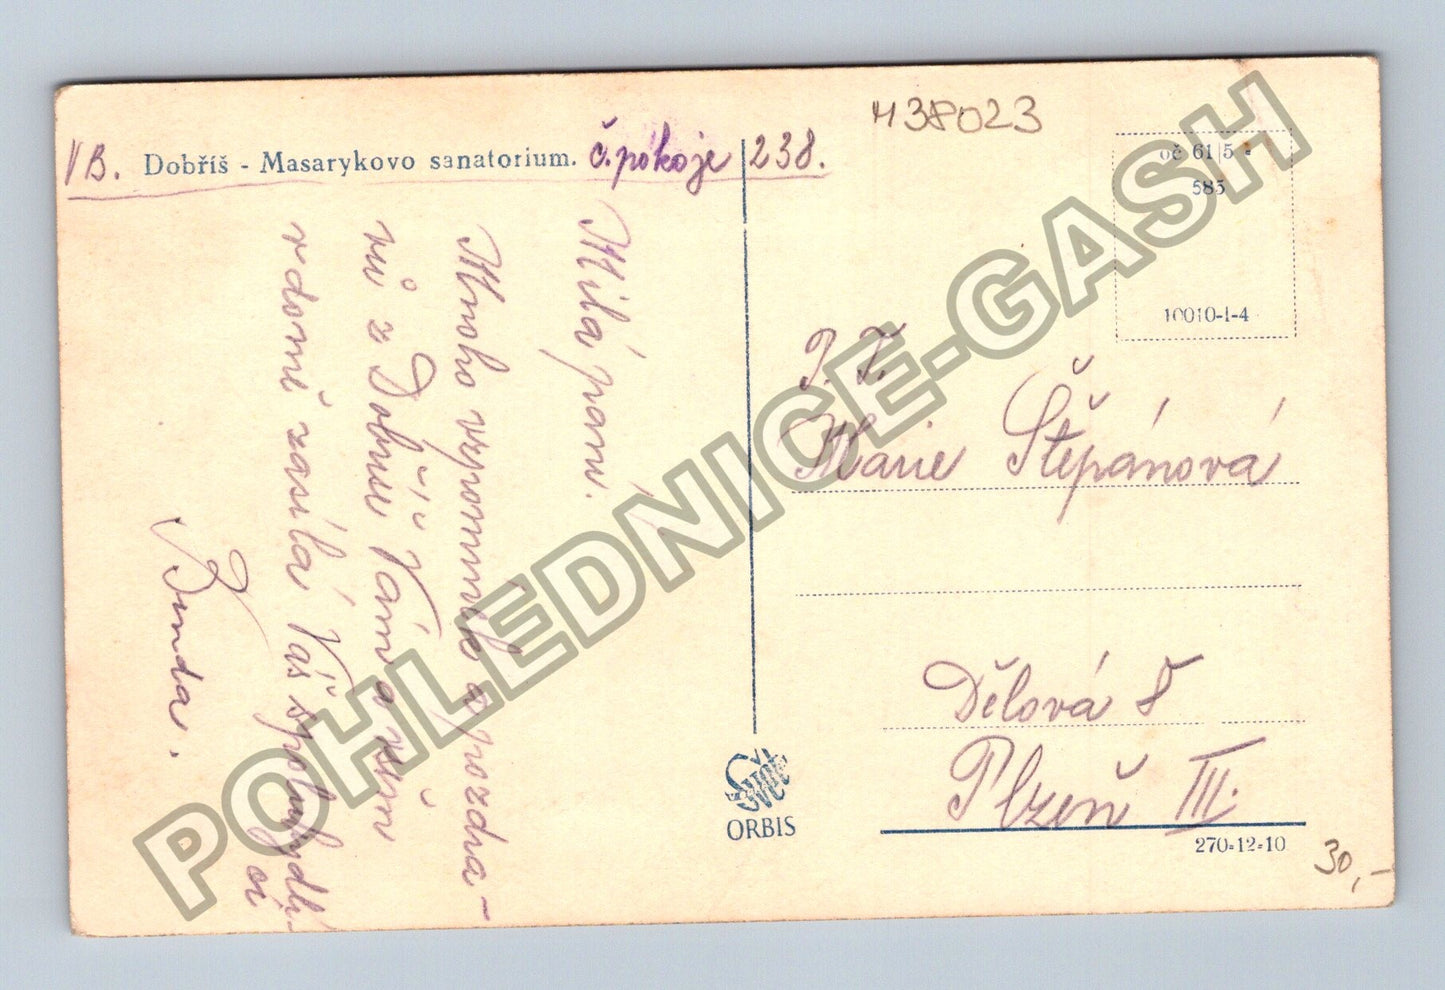 M38023
VB. Dobříš - Masarykovo sanatorium. č. pokoje 238.
Milá paní.
Mnoho vzpomínek a pozdra-
vů z Dobříše Vám a všem
v domě zasílá Váš spolubydlí-
cí
Bunda.
oč 61|5 -
585
10010-I-4
P. T.
Marie Štěpánová
Dělová 8
Plzeň III.
Svět
ORBIS
270-12-10
30,-
POHLEDNICE-GASH